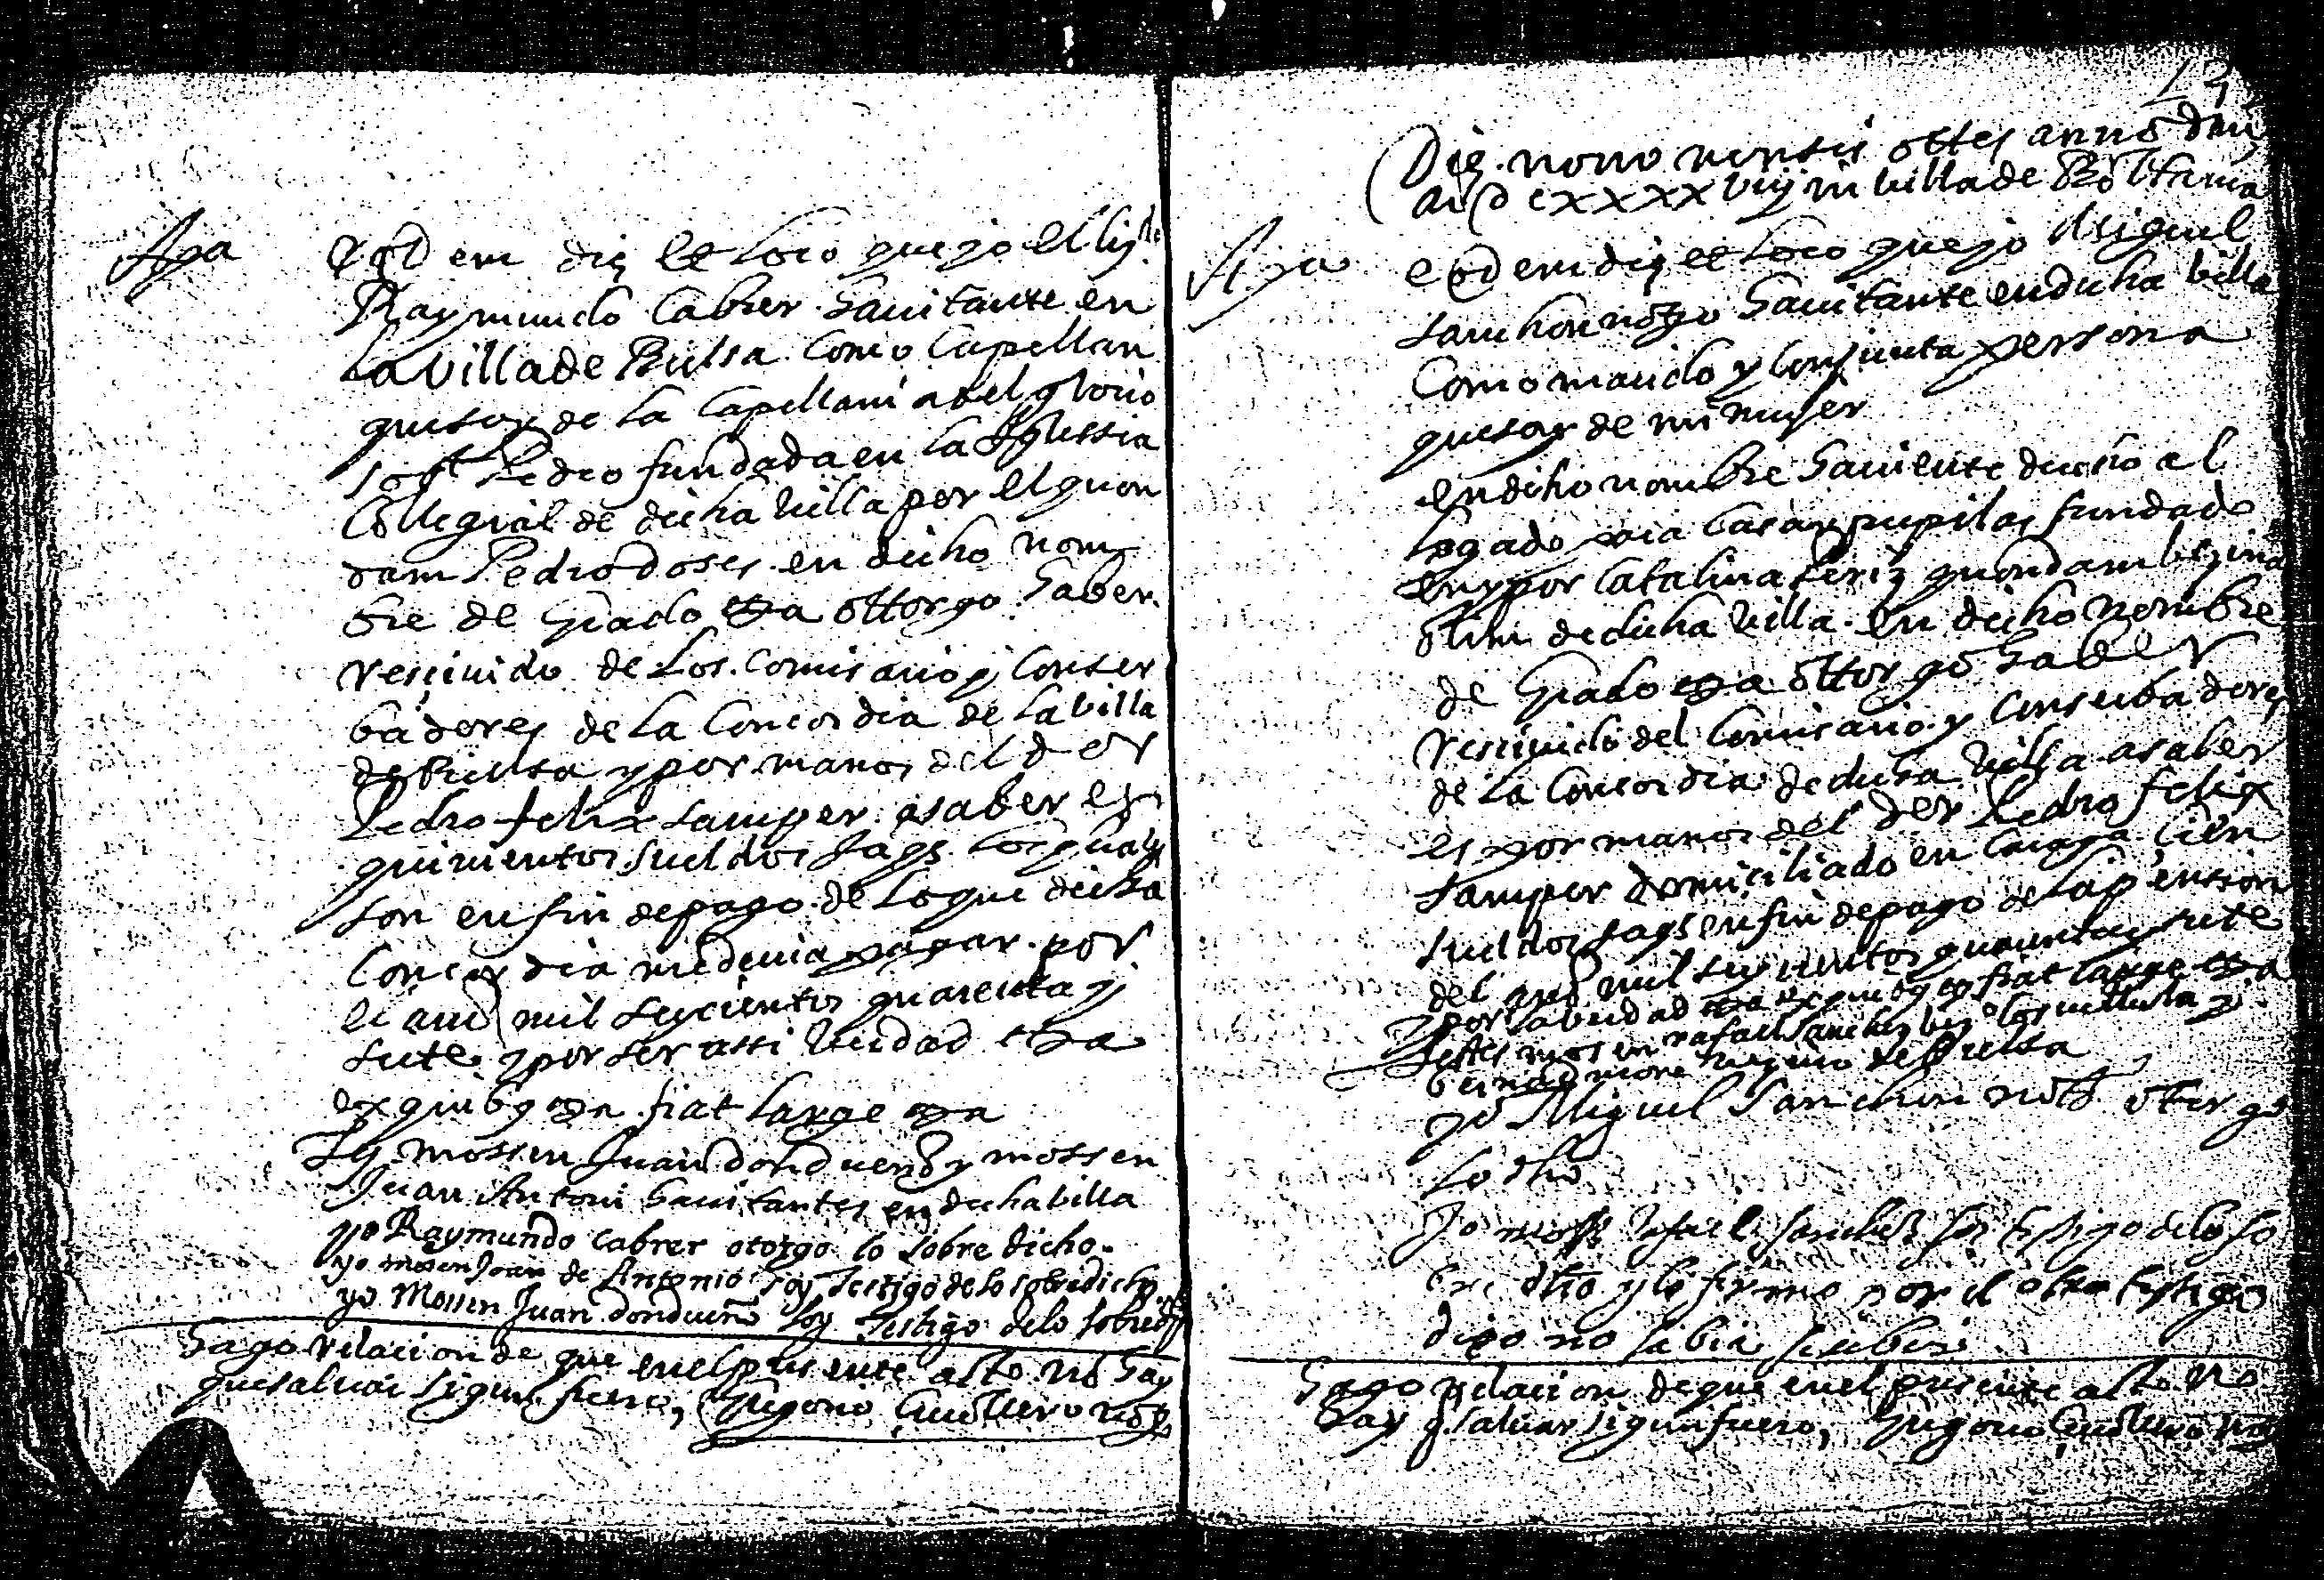 Apa
Eodem die et loco que yo el liz.do
Raymundo Cabrer hauitante en
la villa de Bielsa como Capellan
que soy de la Capellania del glorio
so st Pedro fundada en la Yglessia
Collegial de dicha villa por el quon
dam Pedro doses en dicho nom
bre de grado etta ottorgo haber
resciuido de los comisario y conser
badores de la Concordia de la billa
de bielsa y por manos del dor
Pedro felix samper asaber es
quinientos sueldos jaqs los quales
son en fin de pago de lo que dicha
Concordia me deuia pagar por
el año mil seyscientos quarenta y
siete y por ser assi verdad etta
ex quibus etta fiat large etta
Ts mossen Juan dondueño y mossen
Juan Antoni hauitantes en dicha billa
yo Raymundo Cabrer otorgo lo sobre dicho
yo mosen Joan de Antonio soy Testigo de lo sobredicho
yo Mossen Juan dondueño soy Testigo de lo sobredicho
Hago relacion de que en el presente acto no hay
que saluar sigun fuero,
Die nono mensis octes anno dni
MDCXXXXVIIJ in villa de Boltania
Apa
eodem die et loco que yo Miguel
sanchon notro hauitante en dicha billa
Como marido y conjunta persona
que soy de mi mujer
en dicho nombre hauiente drecho al
legado para casar pupilas fundado
en y por Catalina periz quondam bezina
olim de dicha villa en dicho nombre
de grado etta ottorgo haber
resciuido del Comisario y conserbadores
de la Concordia de dicha villa asaber
es por manos del dor Pedro felix
samper domiciliado en Caragа cien
sueldos jaqs en fin de pago de la pension
del año mil seyscientos quarenta y siete
y por la berdad etta ex quibus fiat large etta
Testes mosen rafael sanchez
de bielsa
yo Miguel Sanchon notº otorgo
lo dho
Jo mosen Rafael sanchez soi testigo de lo so
bre dho y lo firmo por el otro testigo
dixo no sabia scribir
Hago relacion de que en el presente acto no
hay q saluar sigun fuero,